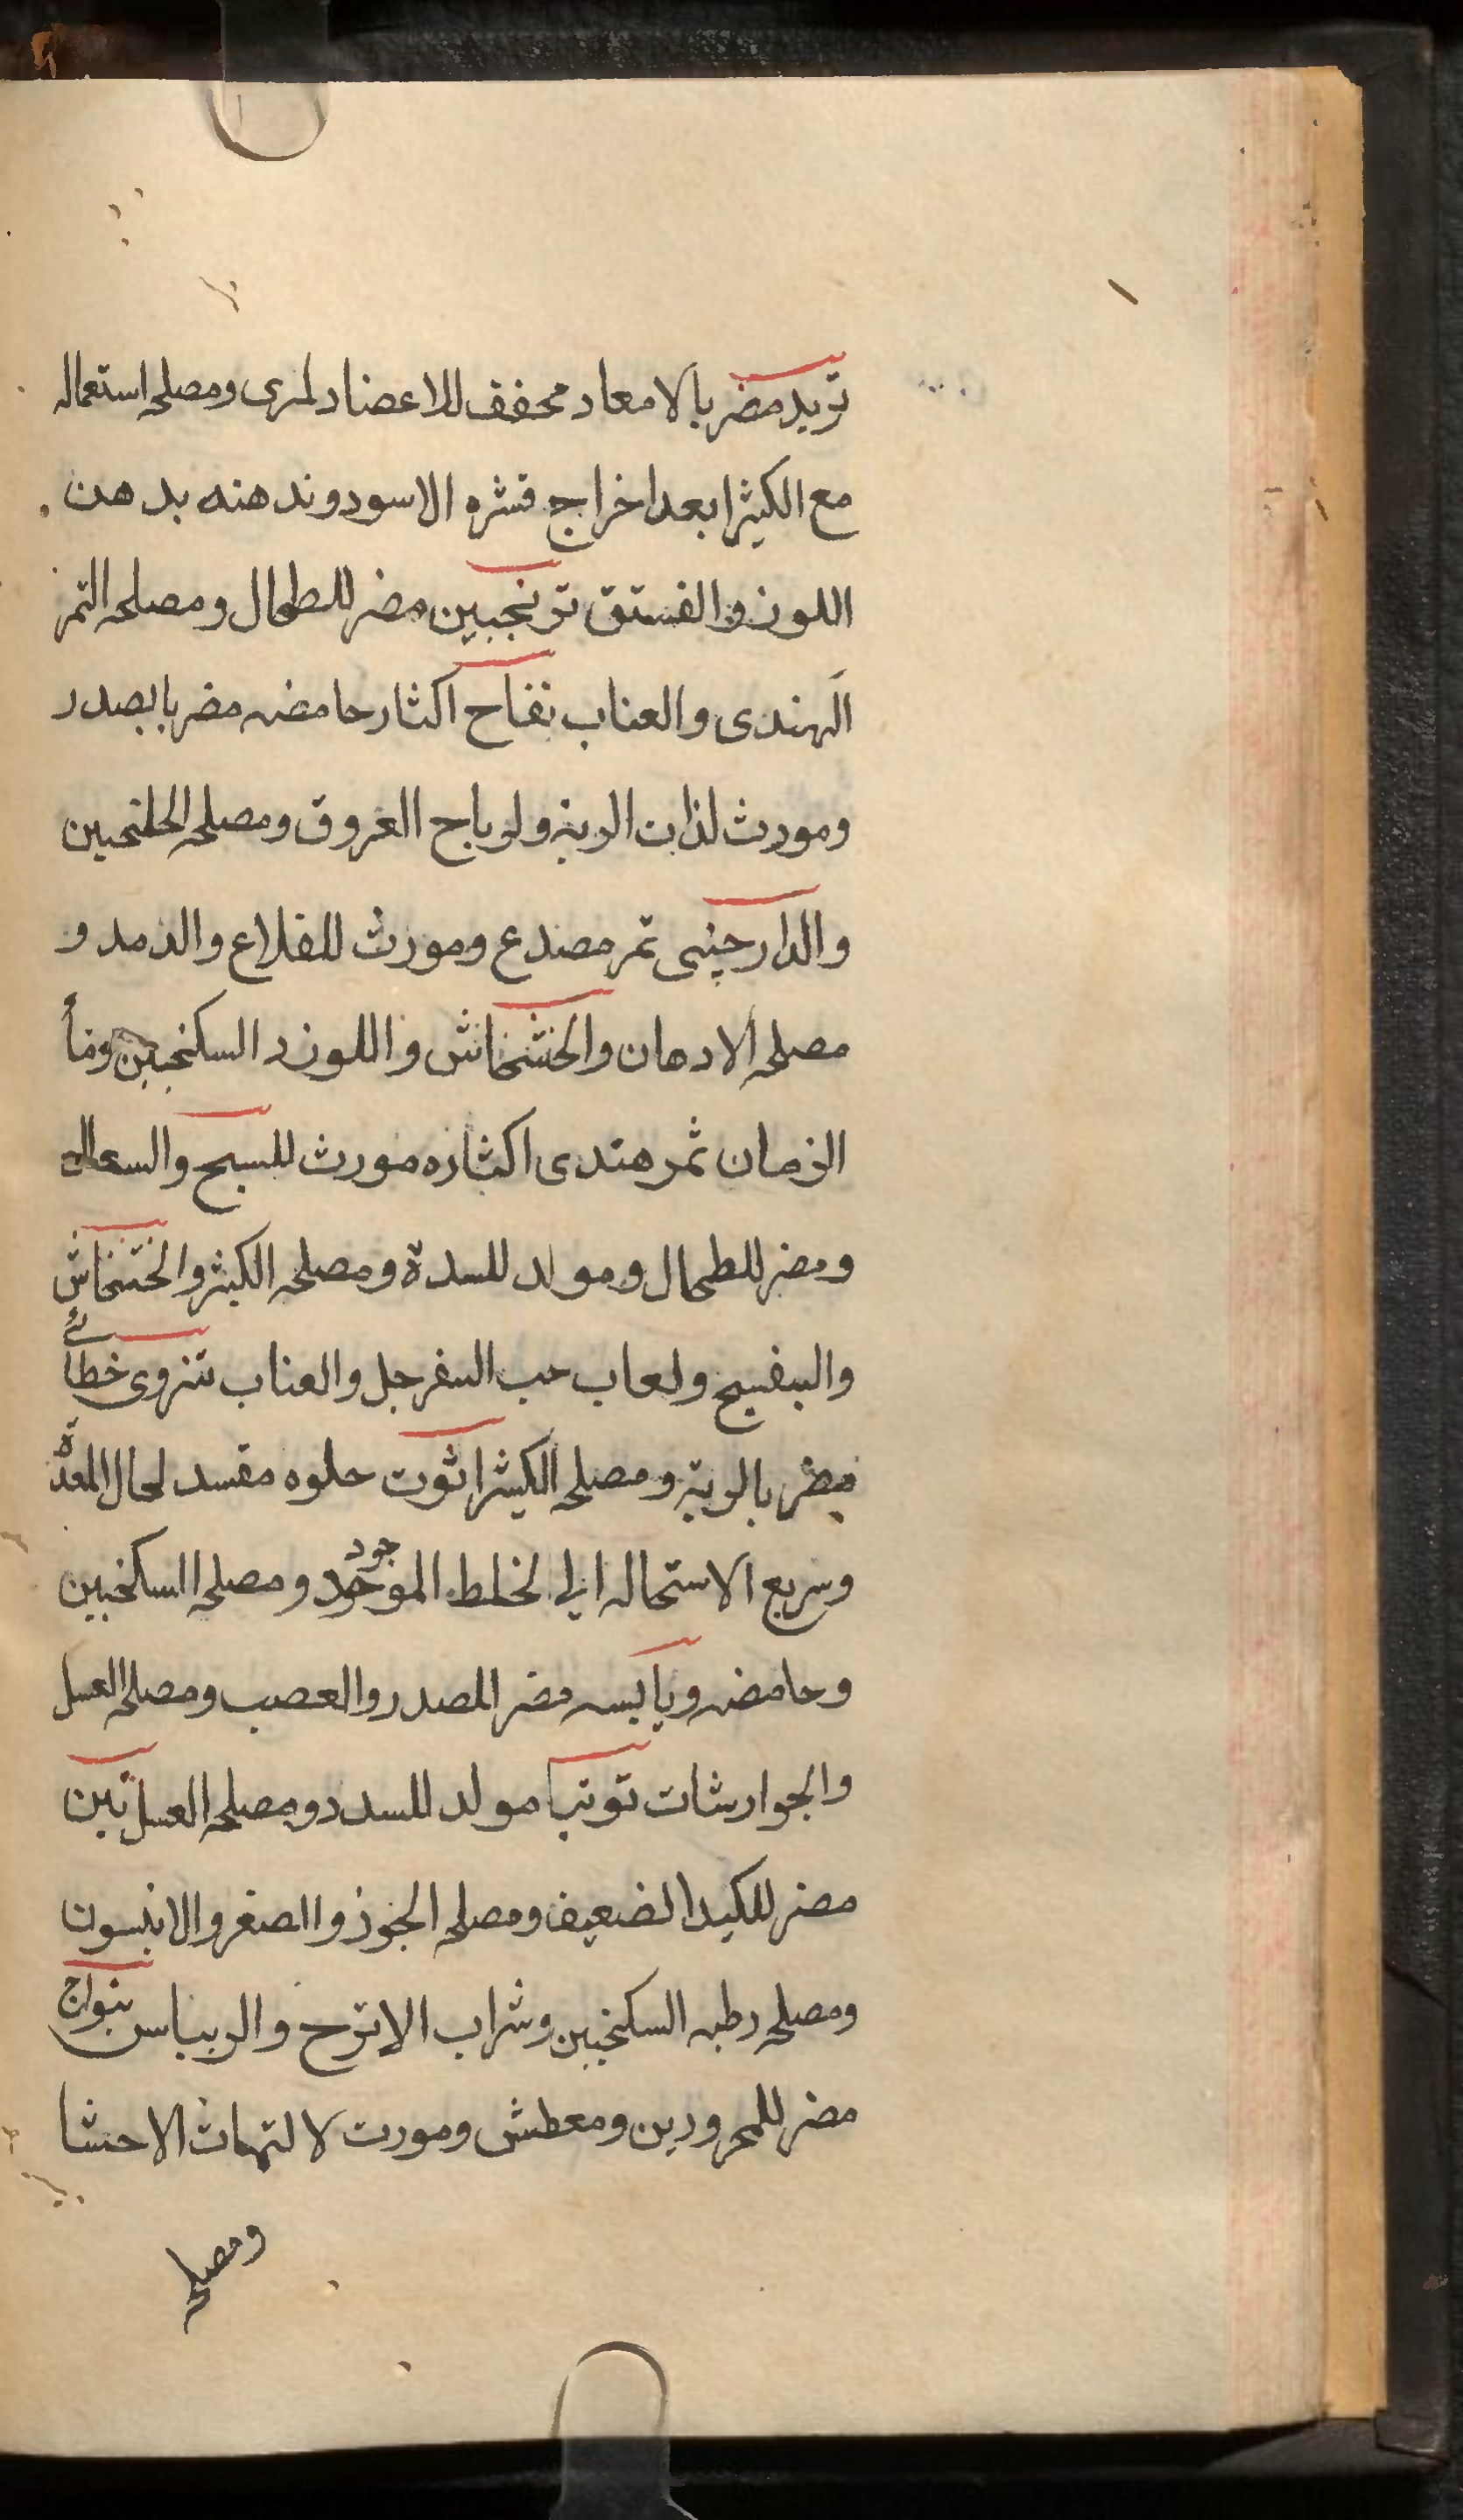 تربد مضر بالامعاد مجفف للاعضاد لمرى ومصلحه استعماله
مع الكثيرا بعد اخراج قشره الاسود وندهنه بدهن
اللوز والفستق ترنجبين مضر للطحال ومصلحه التمر
الهندى والعناب تفاح اكثار حامضه مضر بالصدر
ومورث لذات الرية ولرياح العروق ومصلحه الجلنجبين
والدارچينى تمر مصدع ومورث للقلاع والرمد و
مصلحه الادهان والخشخاش واللوز د السكنجبين وماً
الرمان ثمر هندى اكثاره مورث للسبح والسعال
ومضر للطحال ومولد للسدة ومصلحه الكيثر والخشخاش
والبنفسج ولعاب حب السفرجل والعناب تنزوى خطائے
مضر بالرية ومصلحه الكيثرا توت حلوه مفسد لحال المعدة
وسريع الاستحاله الى لخلط الموجود جود ومصلحه السكنجبين
وحامضه ويابسه مضر للصدر والعصب ومصلحه العسل
والجوارشات توتيا مولد للسدد ومصلحه العسل تين
مضر للكبد الضعيف ومصلحه الجوز والصعتر والانيسون
ومصلحه رطبه السكنجبين وشراب الاترج والريباس بنواج
مضر للمحرورين ومعطش ومورث لالتهاث الاحشا
ومصلحه